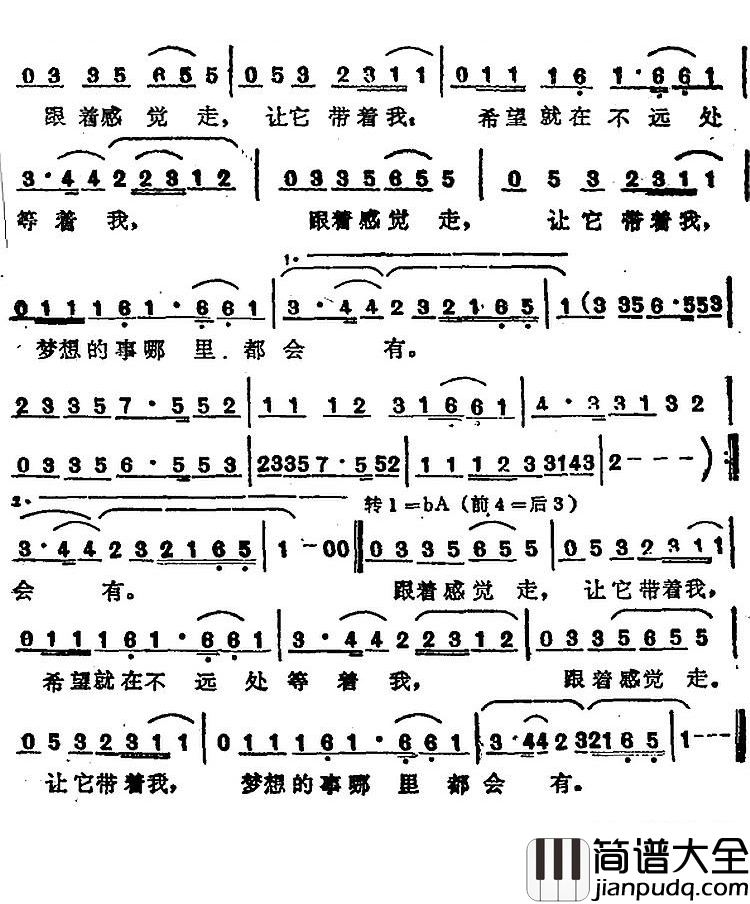 0 3 3 5 6 5 5 | 0 5 3 2 3 1 1 | 0 1 1 1 6 1 · 6 6 1
跟着感觉走， 让它带着我； 希望就在不远处
3 · 4 4 2 2 3 1 2 | 0 3 3 5 6 5 5 | 0 5 3 2 3 1 1 |
等着我， 跟着感觉走， 让它带着我，
1.
0 1 1 1 6 1 · 6 6 1 | 3 · 4 4 2 3 2 1 6 5 | 1 (3 3 5 6 · 5 5 3 |
梦想的事哪里都会有。
2 3 3 5 7 · 5 5 2 | 1 1 1 2 3 1 6 6 1 | 4 · 3 3 1 3 2 |
0 3 3 5 6 · 5 5 3 | 2 3 3 5 7 · 5 5 2 | 1 1 1 2 3 3 1 4 3 | 2 - - - ) :||
2. 转1=bA（前4=后3）
3 · 4 4 2 3 2 1 6 5 | 1 - 0 0 || 0 3 3 5 6 5 5 | 0 5 3 2 3 1 1 |
会有。 跟着感觉走， 让它带着我，
0 1 1 1 6 1 · 6 6 1 | 3 · 4 4 2 2 3 1 2 | 0 3 3 5 6 5 5 |
希望就在不远处等着我， 跟着感觉走。
0 5 3 2 3 1 1 | 0 1 1 1 6 1 · 6 6 1 | 3 · 4 4 2 3 2 1 6 5 | 1 - - - ||
让它带着我， 梦想的事哪里都会有。
简谱大全
jianpudq.com